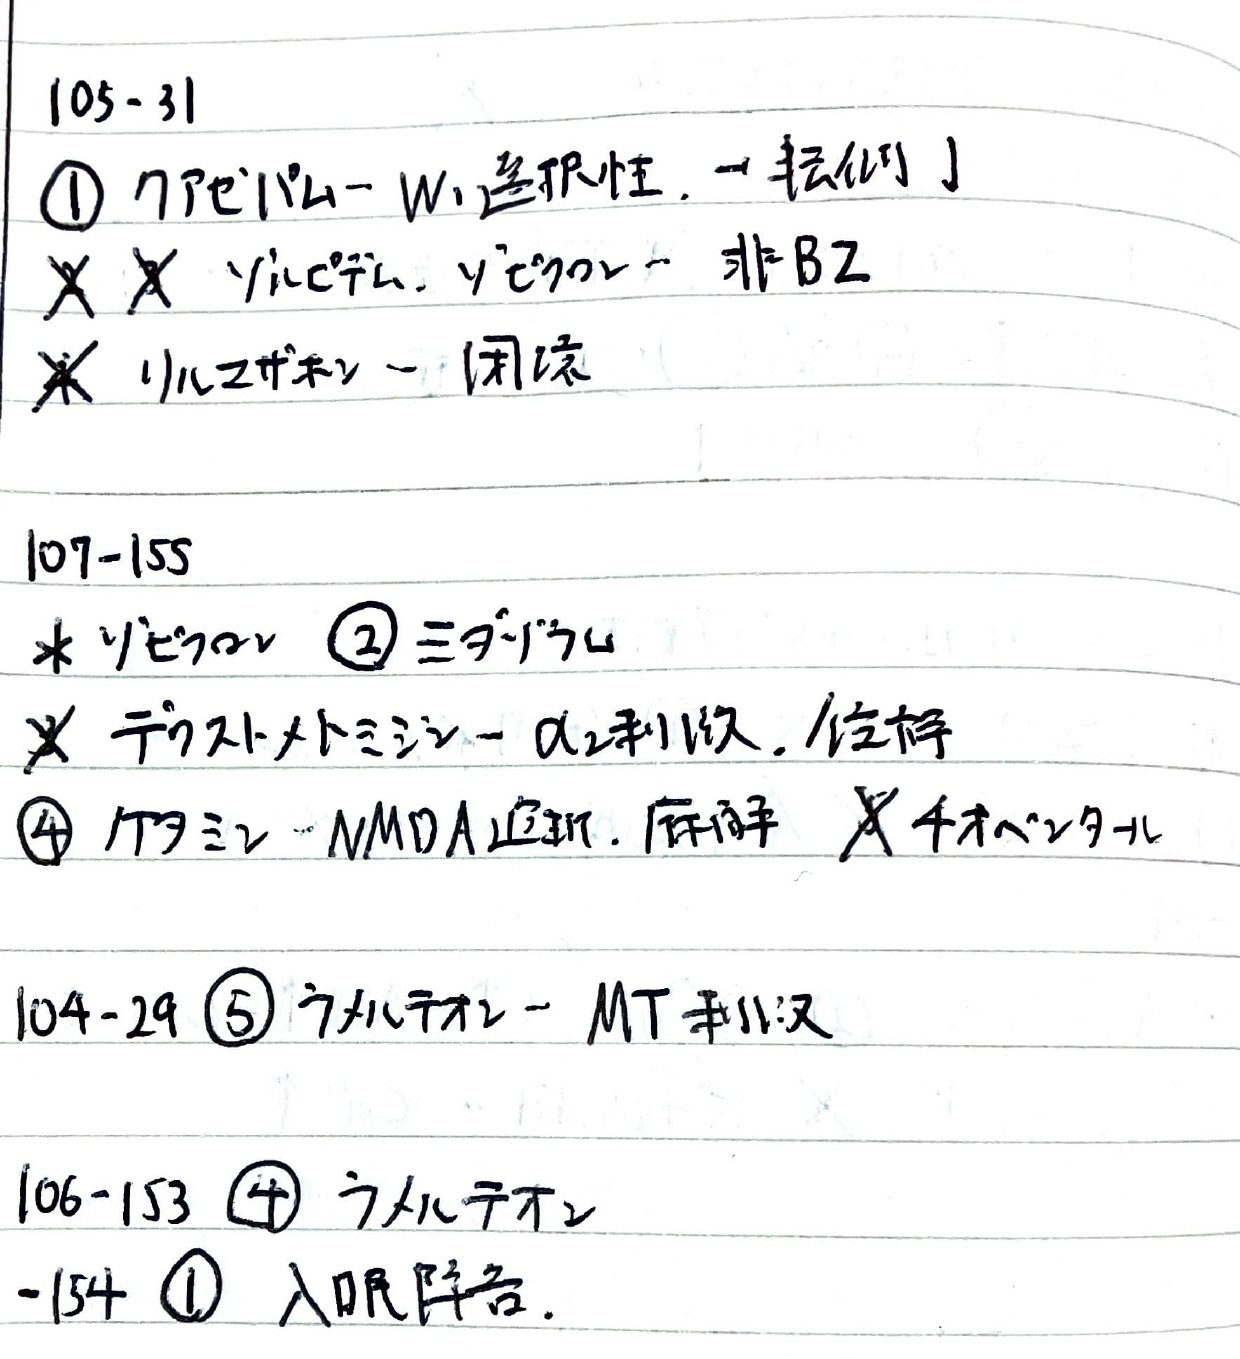 105-31
① クアゼパム- W₁選択性. → 転倒↓
X X ゾルピデム. ゾピクロン- 非BZ
X リルマザホン - 閉環
107-155
* ゾピクロン ② ミダゾラム
X デクストメトミジン- α₂刺激.
④ ケタミン - NMDA遮断. 麻酔 X チオペンタール
104-29 ⑤ ラメルテオン- MT刺激
106-153 ④ ラメルテオン
-154 ① 入眠障害.